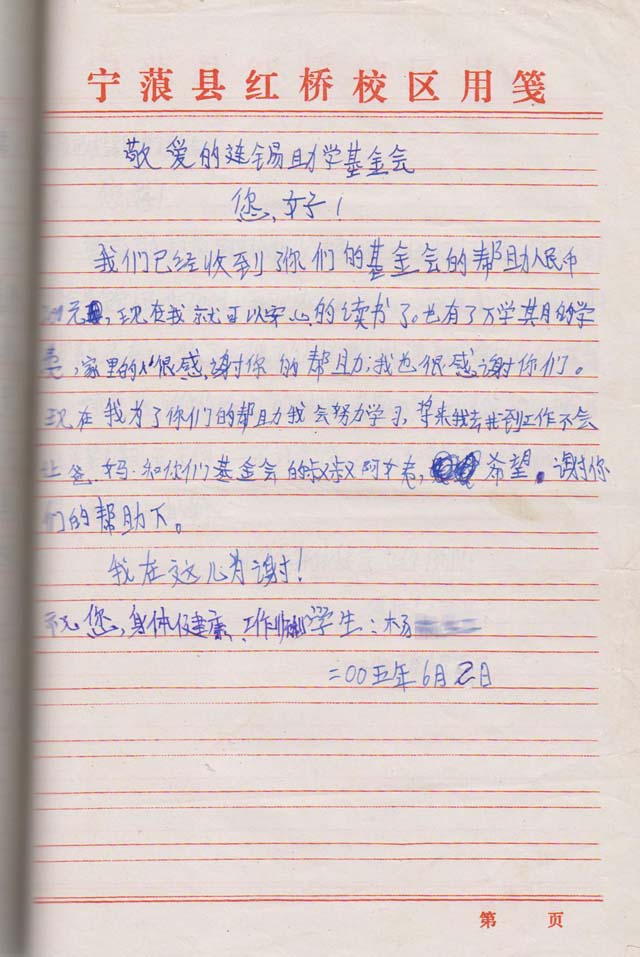 宁蒗县红桥校区用笺
敬爱的连锡助学基金会
您,好!
我们已经收到了你们的基金会的帮助人民币
元,现在我就可以安心的读书了。也有了万学其月的学
,家里的人很感谢你的帮助;我也很感谢你们。
现在我为了你们的帮助我会努力学习,将来我去找到工作不会
让爸.妈.和你们基金会的叔叔阿,希望。谢你
们的帮助下。
我在这儿为谢!
祝您,身体健康,工作顺利学生:杨
二00五年6月2日
第 页